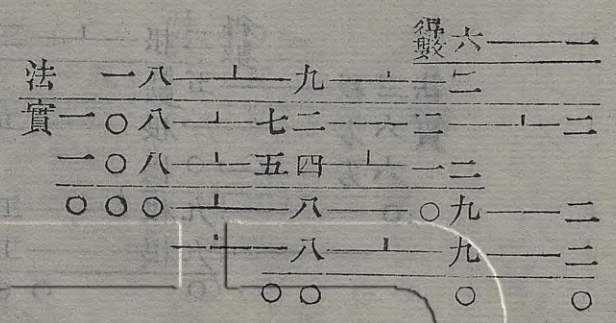 得數六———一
法一八—⊥—九—⊥—二
實一〇八—⊥—七二———二—⊥—二
一〇八—⊥—五四—⊥—一二
〇〇〇—⊥—八———〇九———二
—⊥—八—⊥—九———二
〇〇〇〇